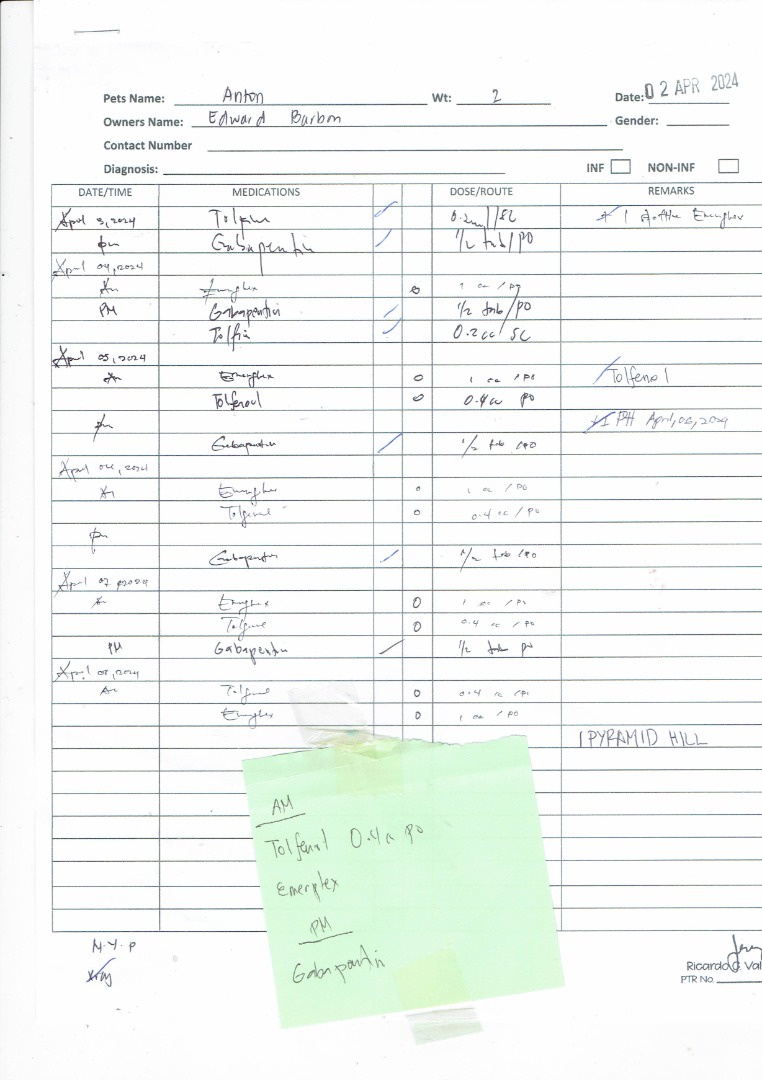 Pets Name: Anton Wt: 2 Date: 02 APR 2024
Owners Name: Edward Barbon Gender:
Contact Number
Diagnosis: INF NON-INF
DATE/TIME MEDICATIONS DOSE/ROUTE REMARKS
April 3, 2024 Tolfin 0.2ml/SC + 1 Emerplex
pm Gabapentin 1/2 tab/PO
April 04, 2024
Am Emerplex 0 1 cc / po
PM Gabapentin 1/2 tab/PO
Tolfin 0.2 cc/ SC
April 05, 2024
Am Emerplex 0 1 cc / PO Tolfenol
Tolfenol 0 0.4 cc po
pm +1 PH April, 06, 2024
Gabapentin 1/2 tab / PO
April 06, 2024
Am Emerplex 0 1 cc / PO
0 0.4 cc / PO
pm
Gabapentin 1/2 tab / PO
April 07 2024
Am Emerplex 0 1 cc / PO
0 0.4 cc / PO
PM Gabapentin 1/2 tab po
April 2024
Am 0 0.4 cc / PO
Emerplex 0 1 cc / PO
1 PYRAMID HILL
AM
Tolfenol 0.4 cc po
Emerplex
PM
Gabapentin
N.Y.P
Xray
Ricardo G. Val
PTR No.